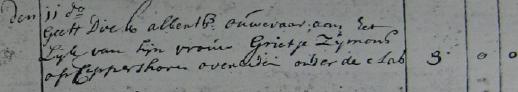 den 11 do
Geeft Dirk Albertsz. ouwevaar aan het
Lyk van zyn vrouw Grietje Zymons
op overleden onder de Clas 3 0 0